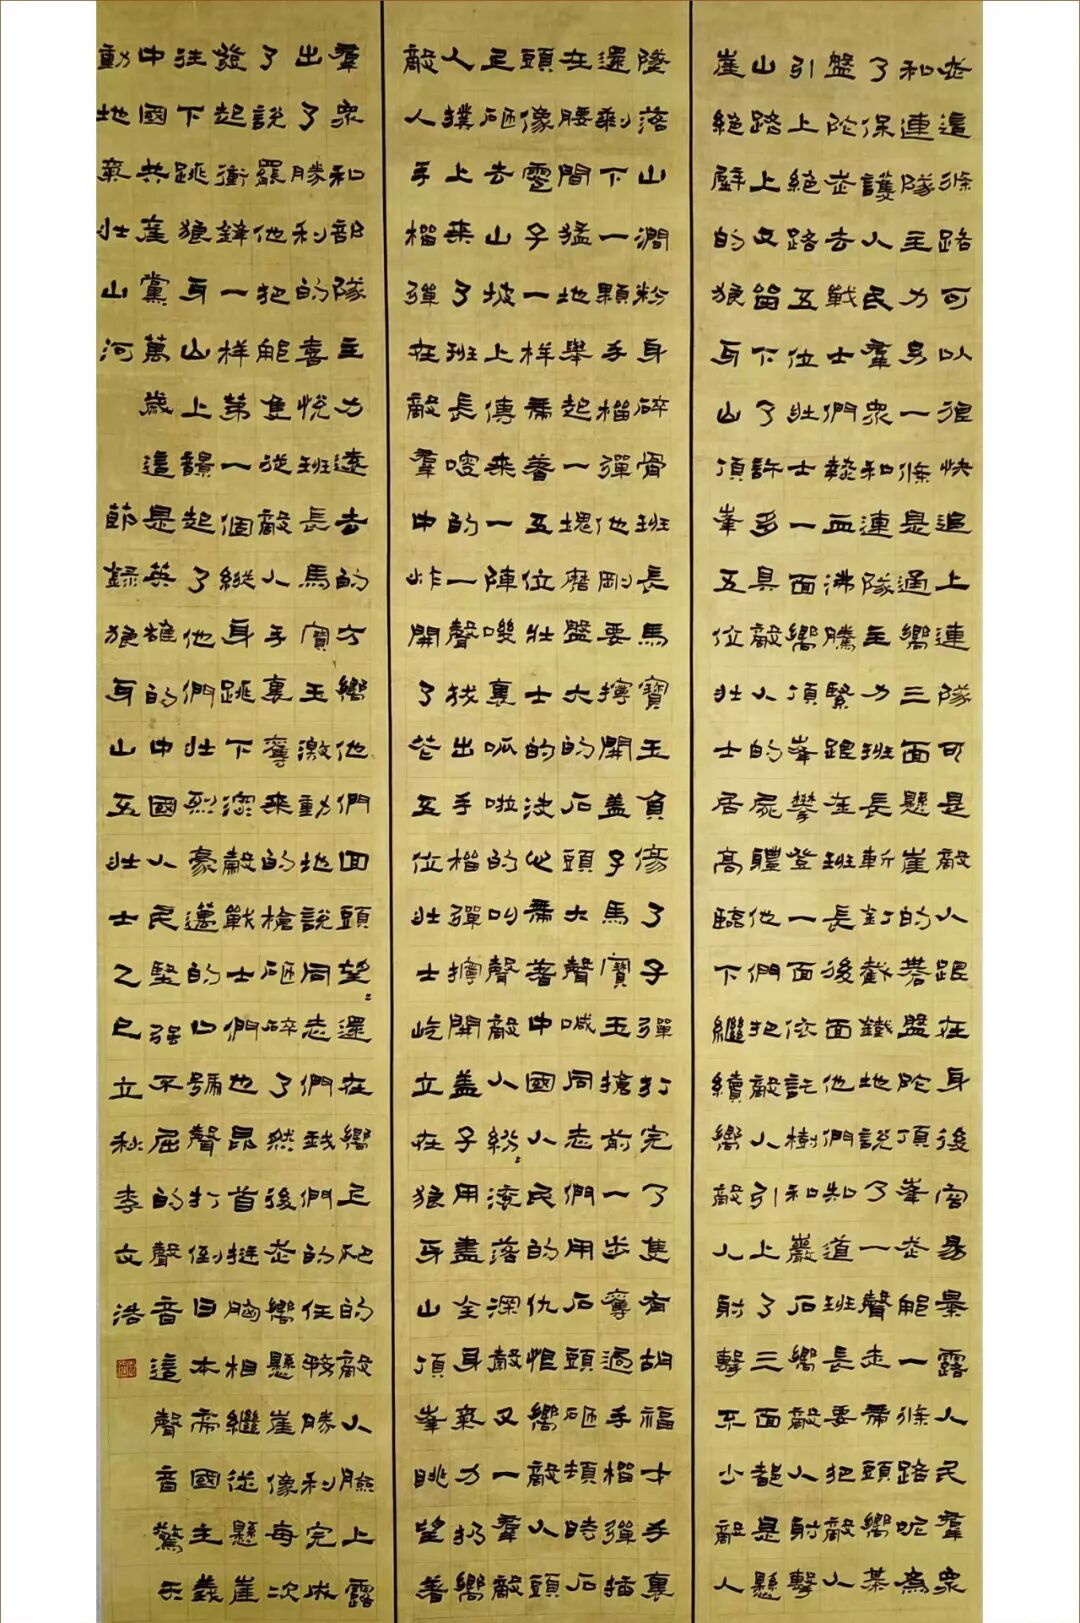 走這條路可以很快追上連隊可是敵人跟在身後容易暴露人民羣衆
和連隊主力另一條是通嚮三面懸崖的碁盤陀頂峯走那一條路呢爲
了保護人民羣衆和連隊主力班長斬釘截鐵地說了一聲走帶頭嚮棊
盤陀走去戰士們熱血沸騰緊跟在班長後面他們知道班長要把敵人
引上絶路五位壯士一面嚮頂峯攀登一面依託樹和巖石嚮敵人射擊
山路上又留下了許多具敵人的屍體他們把敵人引上了三面都是懸
崖絶壁的狼牙山頂峯五位壯士居高臨下繼續嚮敵人射擊不少敵人
墜落山澗粉身碎骨班長馬寶玉負傷了子彈打完了隻有胡福才手裏
還剩下一顆手榴彈他剛要擰開蓋子馬寶玉搶前一步奪過手榴彈插
在腰間猛地舉起一塊磨盤大的石頭大聲喊同志們用石頭砸頓時石
頭像雹子一樣帶着五位壯士的決心帶着中國人民的仇恨嚮敵人頭
上砸去山坡上傳來一陣嘰裏呱啦的叫聲敵人紛〻滚落深穀又一羣敵
人撲上來了班長嗖的一聲拔出手榴彈擰開蓋子用盡全身氣力扔嚮
敵人手榴彈在敵羣中炸開了花五位壯士屹立在狼牙山頂峯眺望着
羣衆和部隊主力遠去的方嚮他們回頭望〻還在嚮上爬的敵人臉上露
出了勝利的喜悅班長馬寶玉激動地說同志們我們的任務勝利完成
了說罷他把那隻從敵人手裏奪來的槍砸碎了然後走嚮懸崖像每次
發起衝鋒一樣第一個縱身跳下深穀戰士們也昂首挺胸相繼從懸崖
往下跳狼牙山上響起了他們壯烈豪邁的口號聲打倒日本帝國主義
中國共產黨萬歲這是英雄的中國人民堅强不屈的聲音這聲音驚天
動地氣壯山河 節録狼牙山五壯士乙巳立秋李文浩